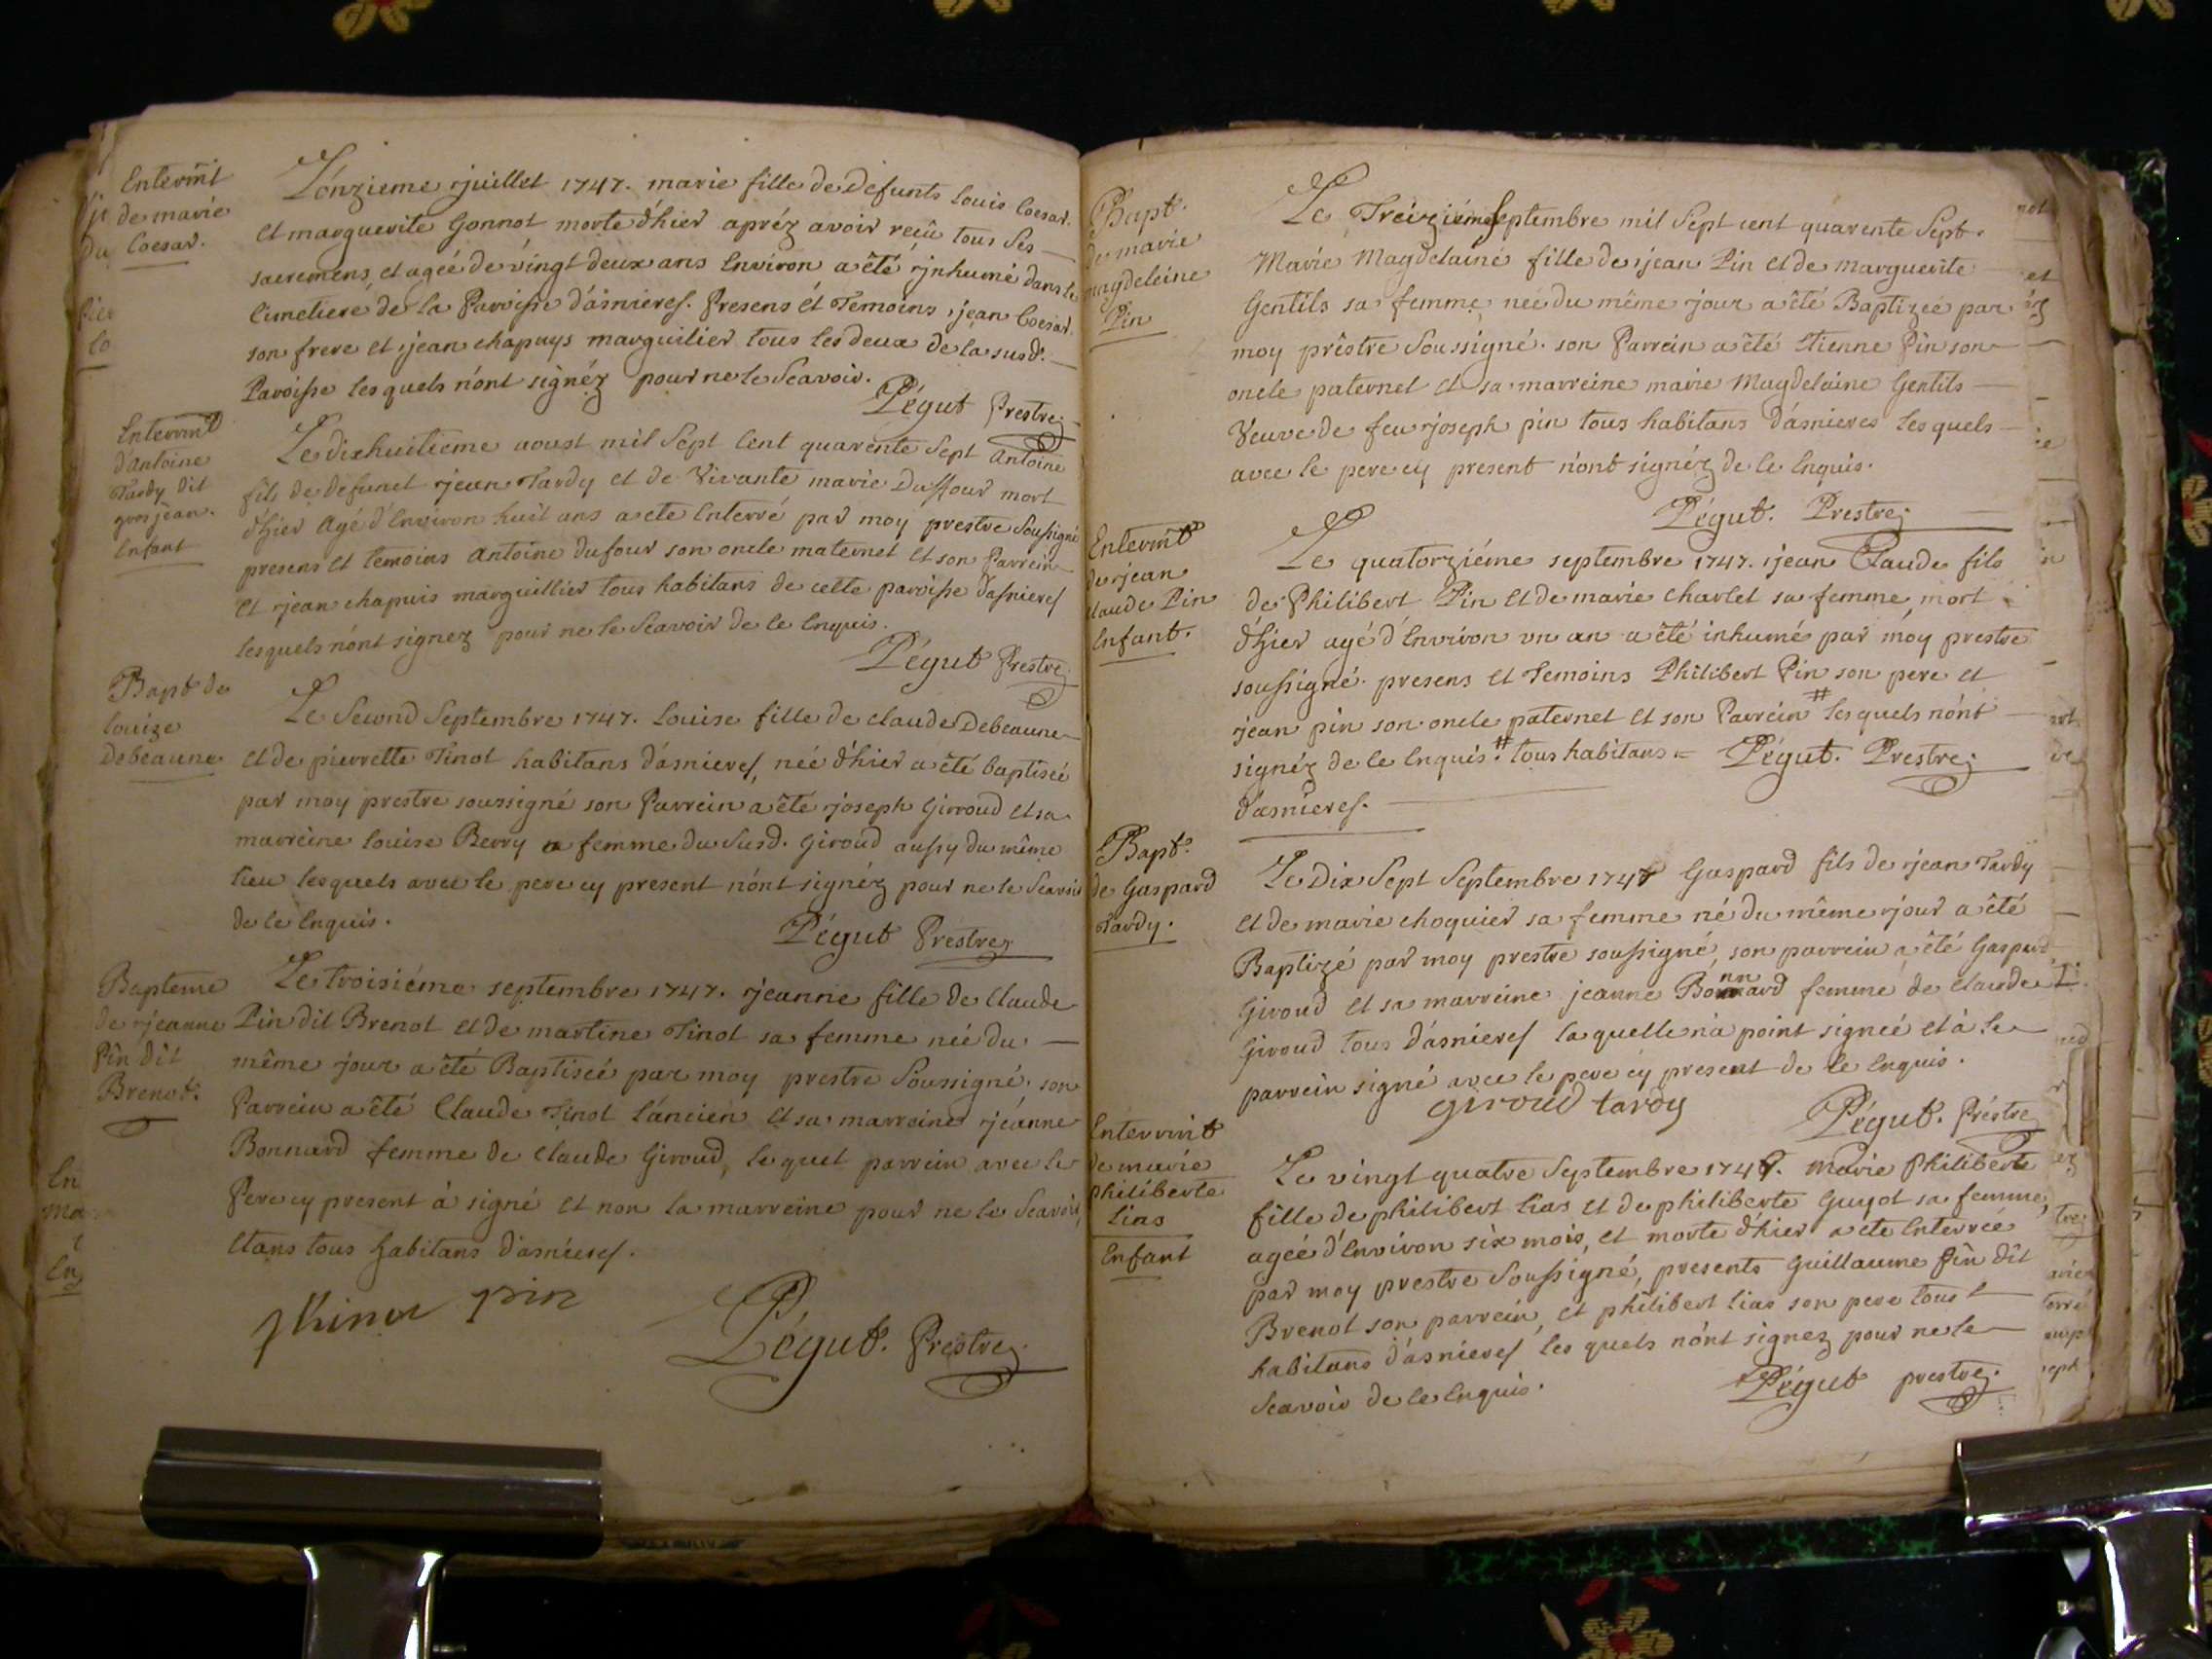 Enterm̃t
de marie
Coesar.
L'onzieme juillet 1747. marie fille de defunts louis Coesar.
et marguerite Gonnot morte d'hier apréz avoir reçû tous ses
sacremens, et ageé de vingt deux ans Environ a êté jnhumé dans le
Cimetiere de la Paroisse d'asnieres. Presens et Temoins jean Coesar.
son frere et jean chapuys marguilier tous les deux de la susd.
Paroisse les quels n'ont signéz pour ne le Scavoir.
Pégut Prestre
Enterm̃t
d'Antoine
Tardy dit
gros jean.
Enfant
Le dixhuitieme aoust mil Sept Cent quarente Sept Antoine
fils de defunct jean Tardy et de Vivante marie Duffour mort
d'hier Agé d'Environ huit ans a ete Enterré par moy prestre Soussigné
presens et temoins Antoine dufour son oncle maternel et son Parrein
et jean chapuis marguillier tous habitans de cette paroisse d'asnieres
lesquels n'ont signez pour ne le Scavoir de ce Enquis.
Pégut Prestre
Bapt de
louize
Debeaune
Le Second Septembre 1747. Louise fille de claude Debeaune
et de pierrette Tinot habitans d'asnieres, neé d'hier a êté baptiseé
par moy prestre soussigné son Parrein a êté joseph Girroud et sa
marreine louise Berry femme du Susd. Giroud aussy du même
lieu lesquels avec le pere cy present n'ont signéz pour ne le Scavoir
de ce Enquis.
Pégut Prestre
Bapteme
de jeanne
Pin dit
Brenot.
Le troisiéme septembre 1747. jeanne fille de Claude
Pin dit Brenot et de martine Tinot sa femme neé du
même jour a êté Baptiseé par moy prestre Soussigné, son
Parrein a êté Claude Tinot l'ancien et sa marreine jeanne
Bonnard femme de claude Giroud, lequel parrein avec le
Pere cy present à signé et non la marreine pour ne le Scavoir,
Etans tous habitans d'asnieres.
pin
Pégut. Prestre
Bapt.
de marie
magdeleine
Pin
Le Treiziéme Septembre mil Sept cent quarente Sept.
Marie Magdelaine fille de jean Pin et de marguerite
Gentils sa femme neé du même jour a êté Baptizeé par
moy prêstre Soussigné. son Parrein a êté Etienne Pin son
oncle paternel et sa marreine marie Magdelaine Gentils
Veuve de feu joseph pin tous habitans d'asnieres les quels
avec le pere cy present n'ont signéz de ce Enquis.
Pégut. Prestre
Enterm̃t
de jean
claude Pin
Enfant.
Le quatorziéme septembre 1747. jean Claude fils
de Philibert Pin et de marie charlet sa femme, mort
d'hier agé d'Environ un an a êté inhumé par moy prestre
soussigné. presens et Temoins Philibert Pin son pere et
jean pin son oncle paternel et son Parrein # les quels n'ont
signéz de ce Enquis. # tous habitans = Pégut. Prestre
d'asnieres.
Bapt.
de Gaspard
Tardy.
Le Dix Sept Septembre 1747 Gaspard fils de jean Tardy
et de marie choquier sa femme né du même jour a êté
Baptizé par moy prestre soussigné, son parrein a êté Gaspard
Giroud et sa marreine jeanne Bonnard femme de claude
Giroud tous d'asnieres laquelle n'a point signeé et à le
parrein signé avec le pere cy present de ce Enquis.
giroud tardy
Pégut. Préstre
Enterm̃t
de marie
Philiberte
Lias
Enfant
Le vingt quatre Septembre 1747. Marie Philiberte
fille de philibert Lias et de philiberte Guyot sa femme,
ageé d'Environ six mois, et morte d'hier a ete Enterreé
par moy prestre Soussigné, presents Guillaume Pin dit
Brenot son parrein, et philibert lias son pere tous
habitans d'asnieres les quels n'ont signez pour ne le
Scavoir de ce Enquis.
Pégut prestre